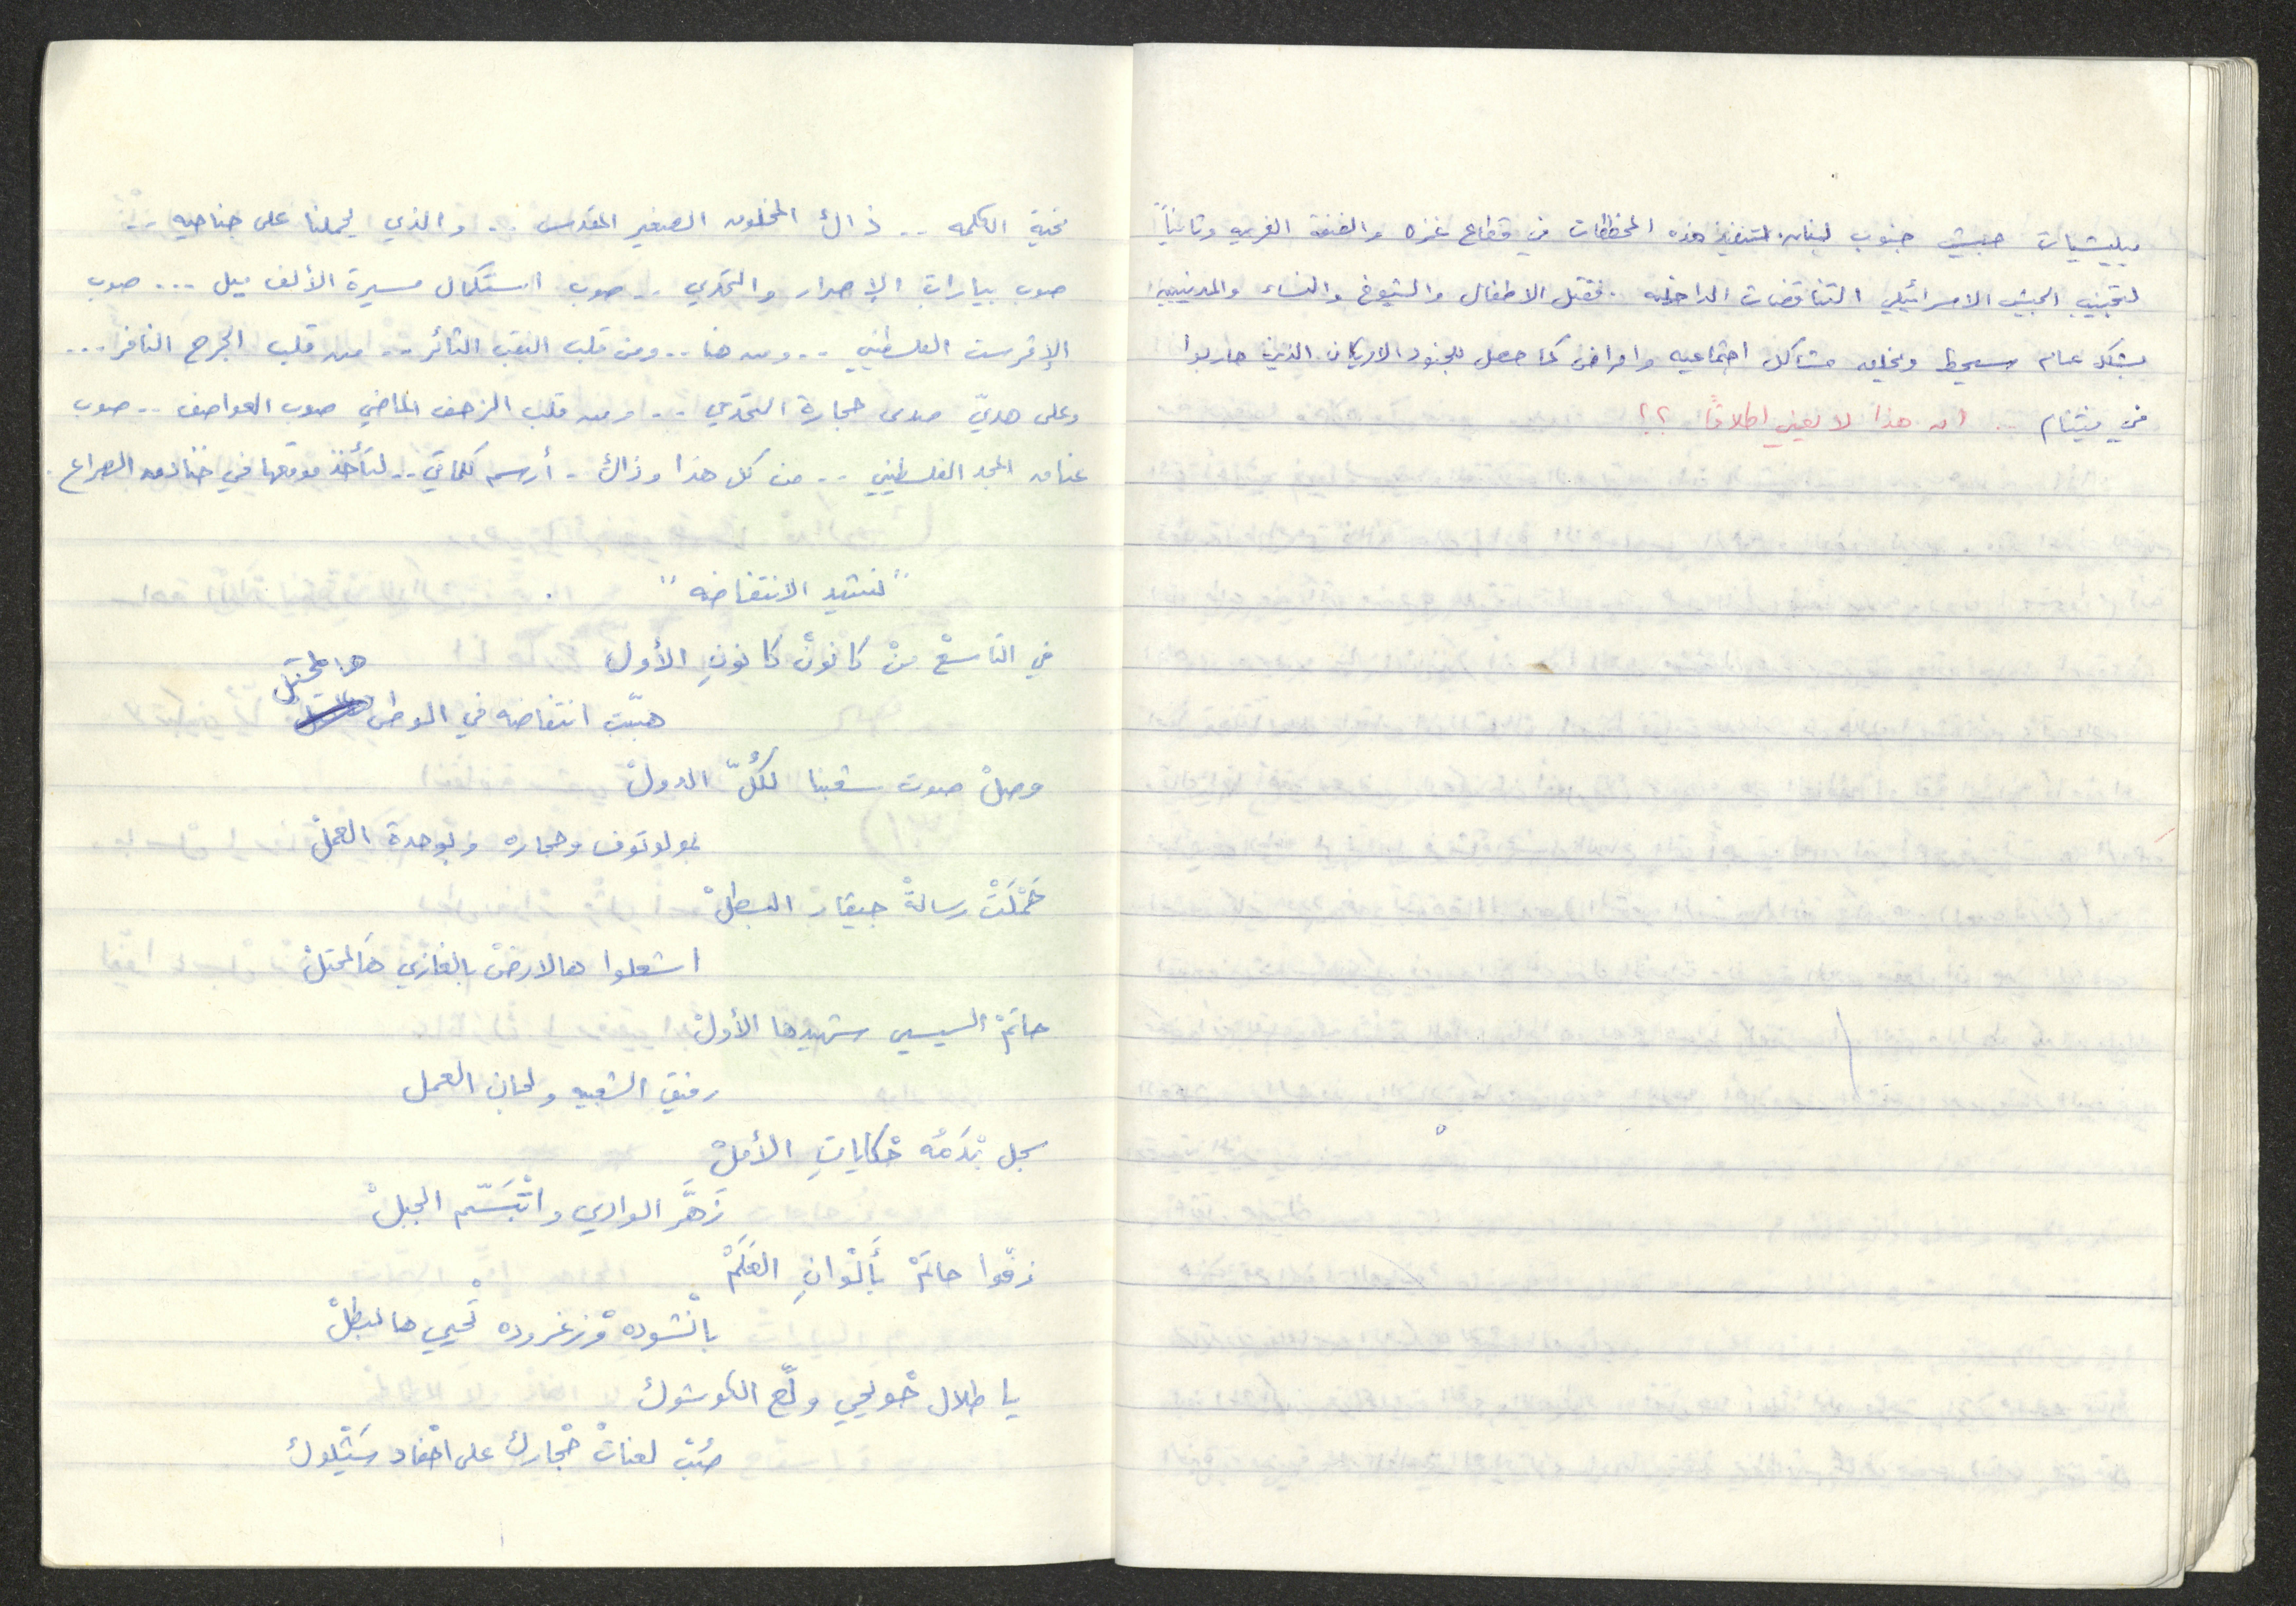 ميليشيات جيش جنوب لبنان لتنفيذ هذه المخططات في قطاع غزه والضفة الغربيه وثانياً
لتجنيب الجيش الاسرائيلي التناقضات الداخليه . فقتل الاطفال والشيوخ والنساء والمدنيين
بشكل عام سيحبط ويخلق مشاكل اجتماعيه وامراض كما حصل للجنود الامريكان الذين حاربوا
في فيتنام .. ان هذا لا يعني اطلاقاً ؟؟
تحية الكلمه .. ذاك المخلوق الصغير المقدس .. والذي يحملنا على جناحيه ..
صوب بيارات الإصرار والتحدي .. صوب استكمال مسيرة الألف ميل ... صوب
الإفرست الفلسطيني .. ومن هنا .. ومن قلب النقب الثائر .. من قلب الجرح النافر ...
وعلى هديّ صدى حجارة التحدي .. ومن قلب الزحف الماضي صوب العواصف .. صوب
عناق المجد الفلسطيني .. من كل هذا وذاك .. أرسم كلماتي .. لتأخذ موقعها في خنادق الصراع .
"نشيد الانتفاضه"
في التاسعْ منْ كانونْ كانونِ الأول
هبّت انتفاضه في الوطن هالمحتل
وصلْ صوت شعبنا لكُلّ الدولْ
بمولوتوف وحجاره وبوحدة العملْ
حَمْلَتْ رسالةْ جيفارَ البطلْ
اشعلوا هالارضْ بالغازي هَالمحتلْ
حاتمْ السيسي شهيدها الأولْ
رفيق الشعبيه ولجان العمل
سجل بْدَمُّه حْكاياتِ الأملْ
زَهَّر الوادي واتْبَسَّم الجبلْ
زفّوا حاتمْ بأَلْوانِ العَلَمْ
بانْشوده وْزغروده تْحيي هالبطلْ
يا طلال حْويحي ولّع الكوشوك
صُبْ لعناتْ حْجارك على احْفاد شَيْلوك